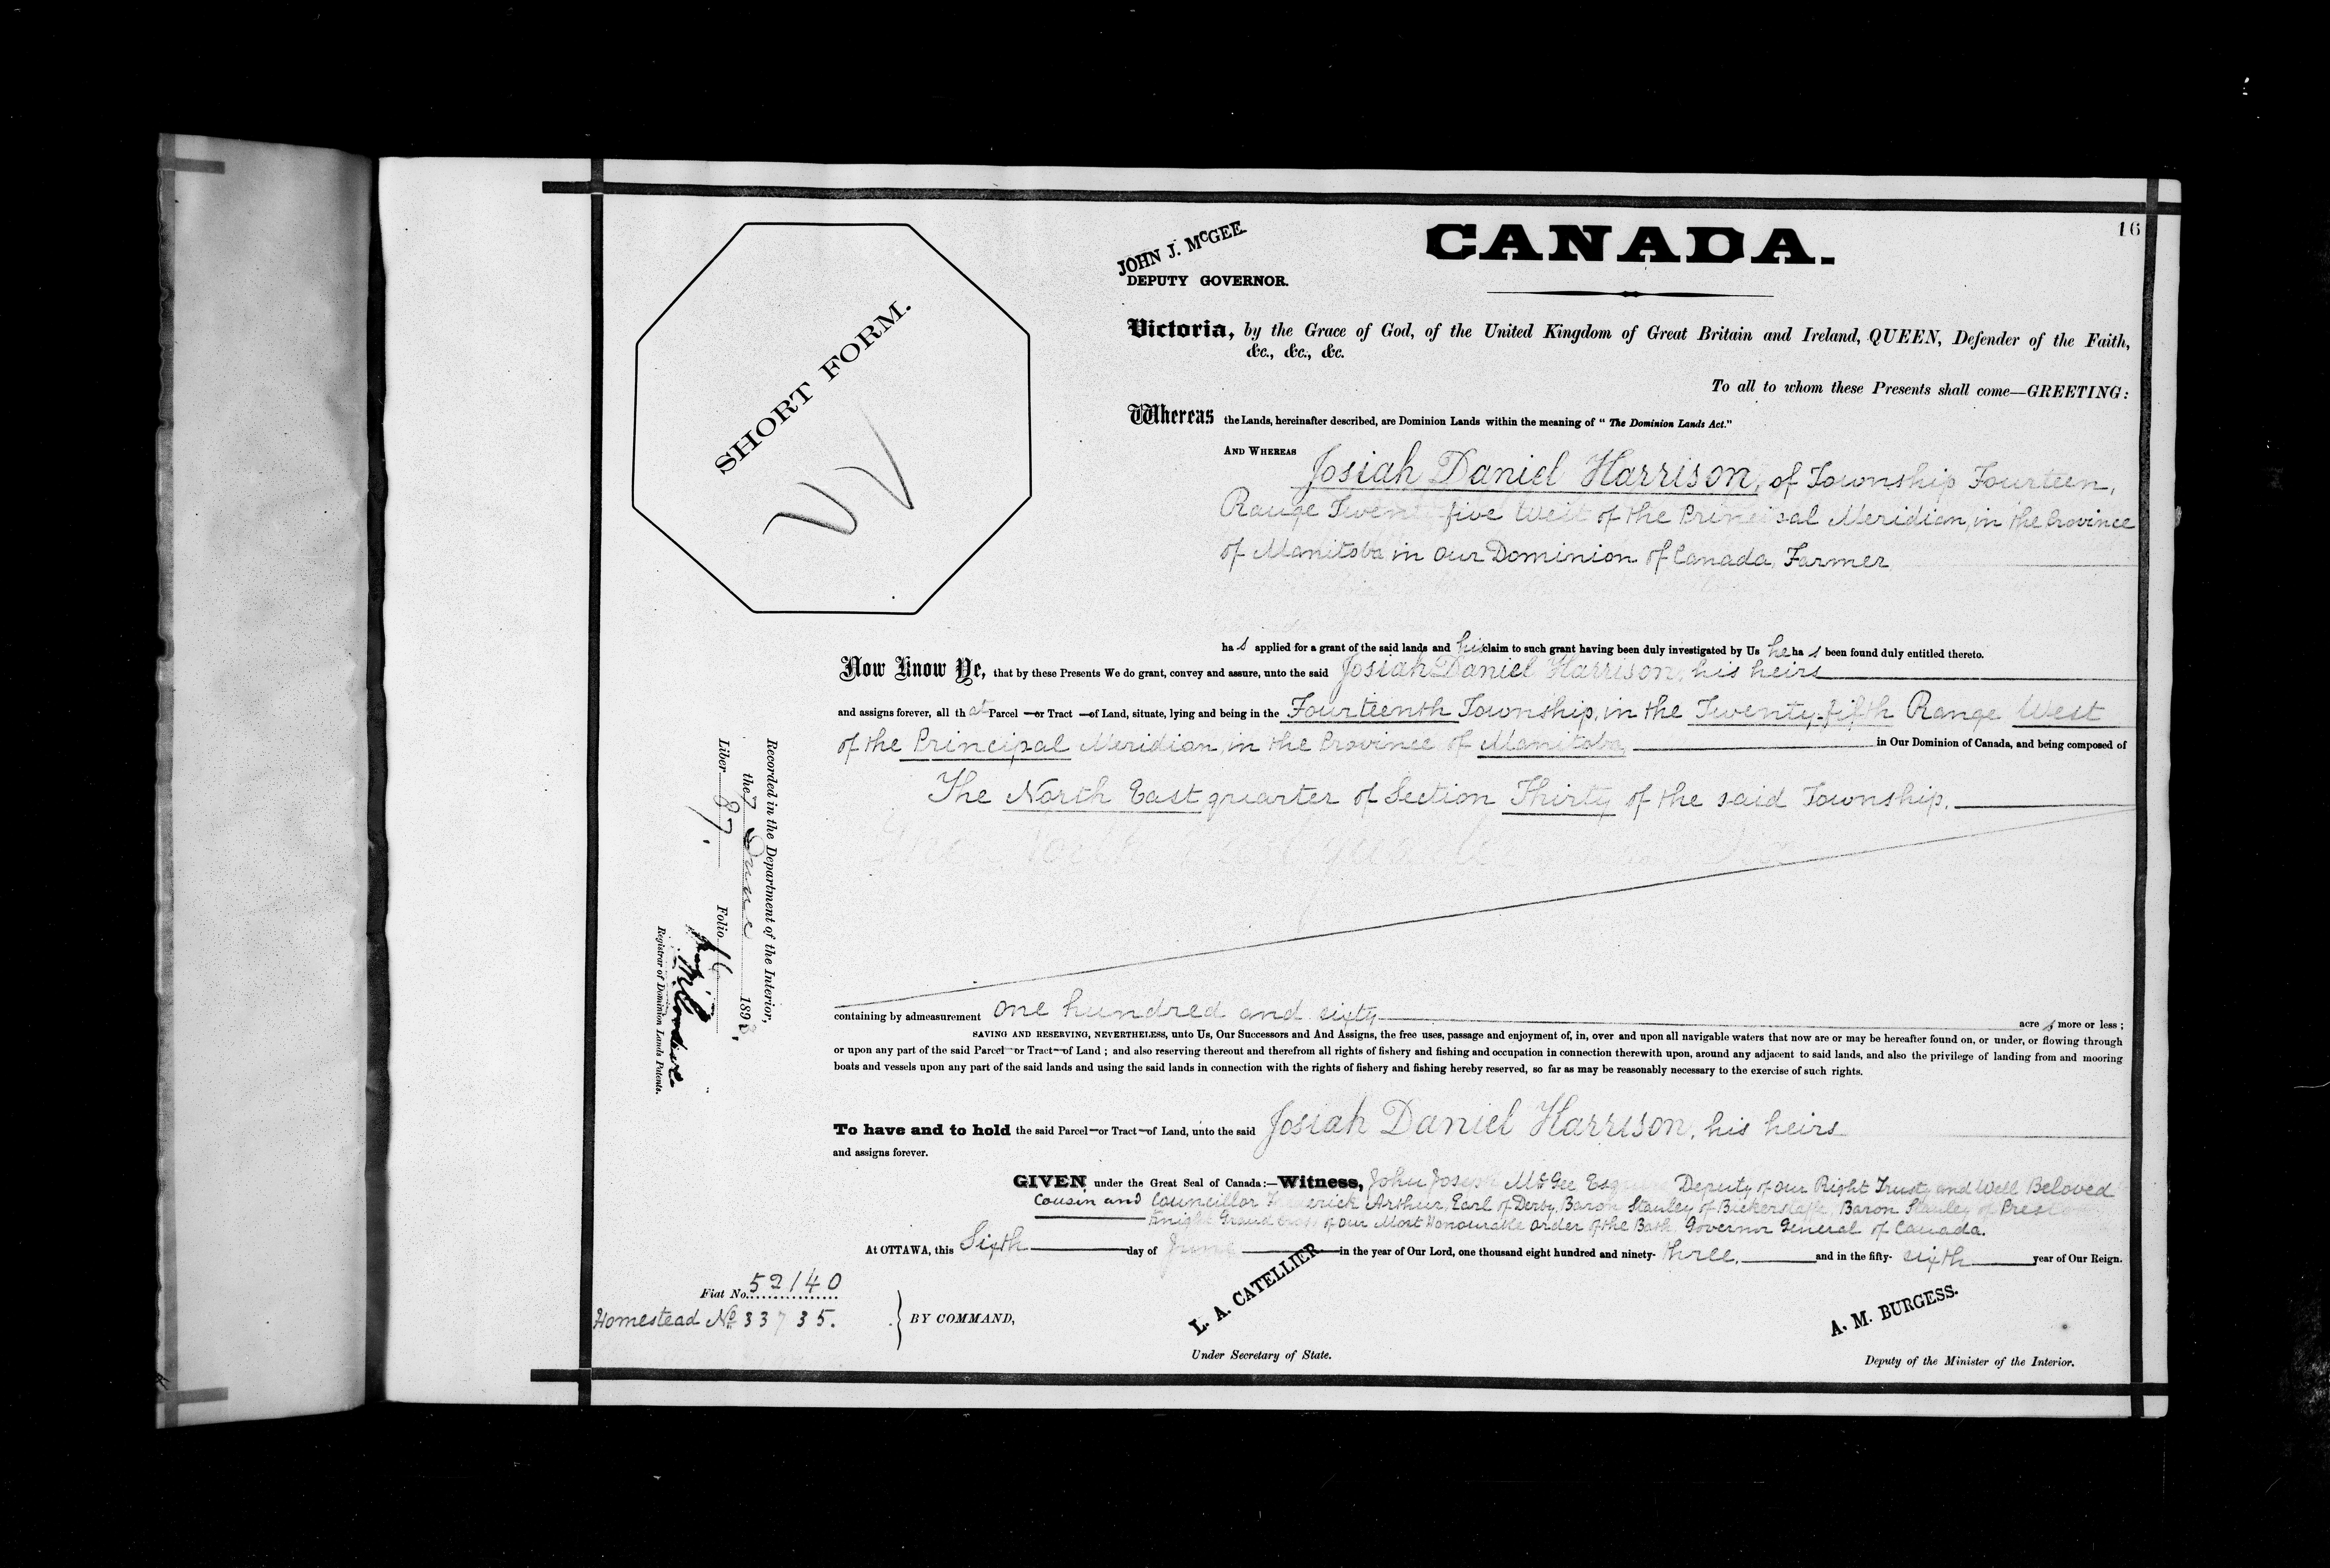 16
CANADA.
JOHN J. McGEE.
DEPUTY GOVERNOR.
SHORT FORM.
Victoria, by the Grace of God, of the United Kingdom of Great Britain and Ireland, QUEEN, Defender of the Faith,
&c., &c., &c.
To all to whom these Presents shall come—GREETING:
Whereas the Lands, hereinafter described, are Dominion Lands within the meaning of "The Dominion Lands Act."
AND WHEREAS Josiah Daniel Harrison, of Township Fourteen,
Range Twenty five West of the Principal Meridian, in the Province
of Manitoba in Our Dominion of Canada, Farmer
has applied for a grant of the said lands and his claim to such grant having been duly investigated by Us he has been found duly entitled thereto.
Now Know Ye, that by these Presents We do grant, convey and assure, unto the said Josiah Daniel Harrison, his heirs
and assigns forever, all that Parcel or Tract of Land, situate, lying and being in the Fourteenth Township, in the Twenty-fifth Range West
of the Principal Meridian, in the Province of Manitoba, in Our Dominion of Canada, and being composed of
The North East quarter of Section Thirty of the said Township.
containing by admeasurement one hundred and sixty acres more or less;
SAVING AND RESERVING, NEVERTHELESS, unto Us, Our Successors and And Assigns, the free uses, passage and enjoyment of, in, over and upon all navigable waters that now are or may be hereafter found on, or under, or flowing through
or upon any part of the said Parcel or Tract of Land; and also reserving thereout and therefrom all rights of fishery and fishing and occupation in connection therewith upon, around any adjacent to said lands, and also the privilege of landing from and mooring
boats and vessels upon any part of the said lands and using the said lands in connection with the rights of fishery and fishing hereby reserved, so far as may be reasonably necessary to the exercise of such rights.
To have and to hold the said Parcel or Tract of Land, unto the said Josiah Daniel Harrison, his heirs
and assigns forever.
GIVEN under the Great Seal of Canada:—Witness, John Joseph McGee Esquire Deputy of Our Right Trusty and Well Beloved
Cousin and Councillor Frederick Arthur, Earl of Derby, Baron Stanley of Bickerstaffe, Baron Stanley of Preston
Knight Grand Cross of Our Most Honourable Order of the Bath, Governor General of Canada.
At OTTAWA, this Sixth day of June in the year of Our Lord, one thousand eight hundred and ninety-three, and in the fifty-sixth year of Our Reign.
Fiat No. 52140
Homestead No. 33735.
BY COMMAND,
L. A. CATELLIER
Under Secretary of State.
A. M. BURGESS.
Deputy of the Minister of the Interior.
Recorded in the Department of the Interior,
the 7 June 1893,
Liber 87. Folio 16
Registrar of Dominion Lands Patents.